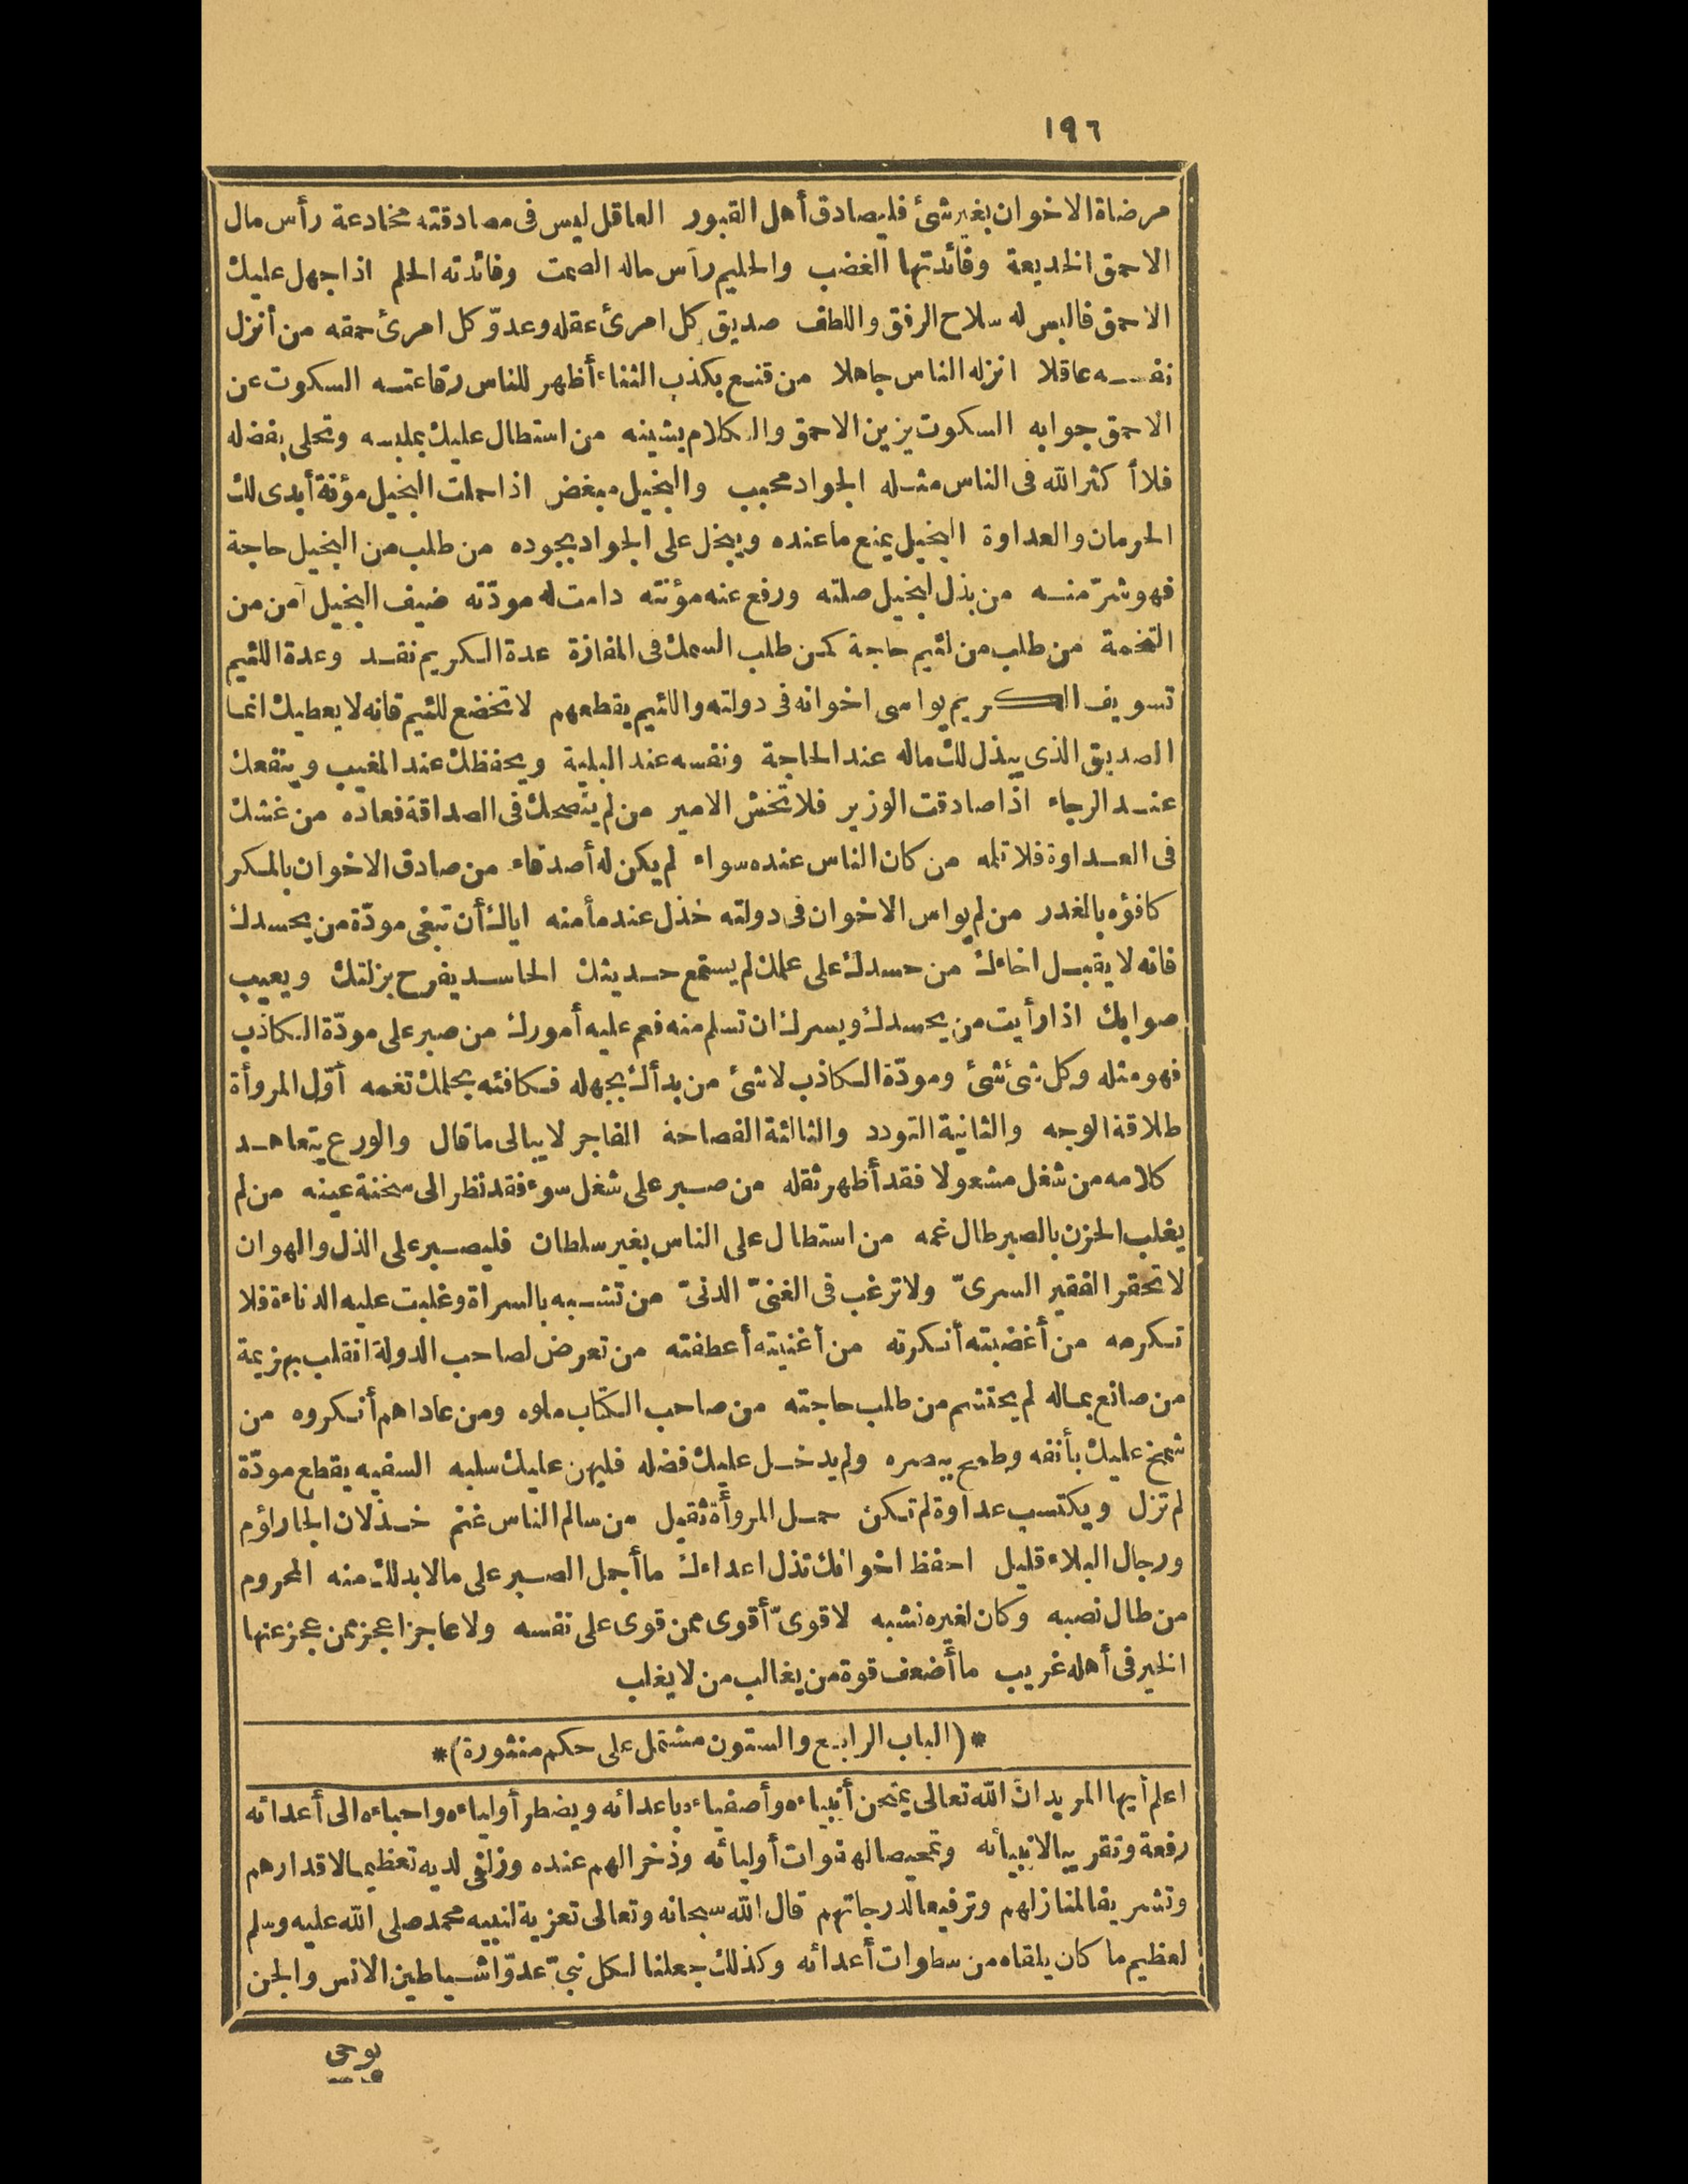 ١٩٦
مرضاة الاخوان بغير شئ فليصادق أهل القبور العاقل ليس فى مصادقته مخادعة رأس مال
الاحمق الخديعة وفائدتها الغضب والحليم رأس ماله الصمت وفائدته الحلم اذا جهل عليك
الاحمق فالبس له سلاح الرفق واللطف صديق كل امرئ عقله وعدوّ كل امرئ حمقه من أنزل
نفسه عاقلا انزله الناس جاهلا من قنع بكذب الثناء أظهر للناس رقاعته السكوت عن
الاحمق جوابه السكوت يزين الاحمق والكلام يشينه من استطال عليك بملبسه وتحلى بفضله
فلا أكثر الله فى الناس مثله الجواد محبب والبخيل مبغض اذا حملت البخيل مؤنة أبدى لك
الحرمان والعداوة البخيل يمنع ما عنده ويبخل على الجواد بجوده من طلب من البخيل حاجة
فهو شرّ منه من بذل لبخيل صلته ورفع عنه مؤنته دامت له مودّته ضيف البخيل آمن من
التخمة من طلب من لئيم حاجة كمن طلب السمك فى المفازة عدة الكريم نقد وعدة اللئيم
تسويف الكريم يواسى اخوانه فى دولته واللئيم يقطعهم لا تخضع للئيم فانه لا يعطيك انما
الصديق الذى يبذل لك ماله عند الحاجة ونفسه عند البلية ويحفظك عند المغيب وينفعك
عند الرجاء اذا صادقت الوزير فلا تخش الامير من لم ينصحك فى الصداقة فعاده من غشك
فى العداوة فلا تلمه من كان الناس عنده سواء لم يكن له أصدقاء من صادق الاخوان بالمكر
كافؤه بالغدر من لم يواس الاخوان فى دولته خذل عند مأمنه اياك أن تبغى مودّة من يحسدك
فانه لا يقبل اخاءك من حسدك على علمك لم يستمع حديثك الحاسد يفرح بزلتك ويعيب
صوابك اذا رأيت من يحسدك ويسرك ان تسلم منه فعم عليه أمورك من صبر على مودّة الكاذب
فهو مثله وكل شئ شئ ومودّة الكاذب لا شئ من بدأك بجهله فكافئه بحلمك تغمه أوّل المروأة
طلاقة الوجه والثانية التودد والثالثة الفصاحة الفاجر لا يبالى ما قال والورع يتعاهد
كلامه من شغل مشغولا فقد أظهر ثقله من صبر على شغل سوء فقد نظر الى سخنة عينه من لم
يغلب الحزن بالصبر طال غمه من استطال على الناس بغير سلطان فليصبر على الذل والهوان
لا تحقر الفقير السرىّ ولا ترغب فى الغنىّ الدنىّ من تشبه بالسراة وغلبت عليه الدناءة فلا
تكرمه من أغضبته أنكرته من أغنيته أعطفته من تعرض لصاحب الدولة انقلب بهزيمة
من صانع بماله لم يحتشم من طلب حاجته من صاحب الكتاب ملوه ومن عاداهم أنكروه من
شمخ عليك بأنفه وطمح ببصره ولم يدخل عليك فضله فليهن عليك سلبه السفيه يقطع مودّة
لم تزل ويكتسب عداوة لم تكن حمل المروأة ثقيل من سالم الناس غنم خذلان الجار لؤم
ورجال البلاء قليل احفظ اخوانك تذل اعداءك ما أجمل الصبر على مالا بد لك منه المحروم
من طال نصبه وكان لغيره نشبه لا قوىّ أقوى ممن قوى على نفسه ولا عاجز اعجز ممن عجز عنها
الخير فى أهله غريب ما أضعف قوة من يغالب من لا يغلب
*(الباب الرابع والستون مشتمل على حكم منثورة)*
اعلم أيها المريد ان الله تعالى يمتحن أنبياءه وأصفياءه باعدائه ويضطر أولياءه واحباءه الى أعدائه
رفعة وتقريبا لانبيائه وتمحيصا لهفوات أوليائه وذخرا لهم عنده وزلفى لديه تعظيما لاقدارهم
وتشريفا لمنازلهم وترفيعا لدرجاتهم قال الله سبحانه وتعالى تعزية لنبيه محمد صلى الله عليه وسلم
لعظيم ما كان يلقاه من سطوات أعدائه وكذلك جعلنا لكل نبىّ عدوّا شياطين الانس والجن
يوحى